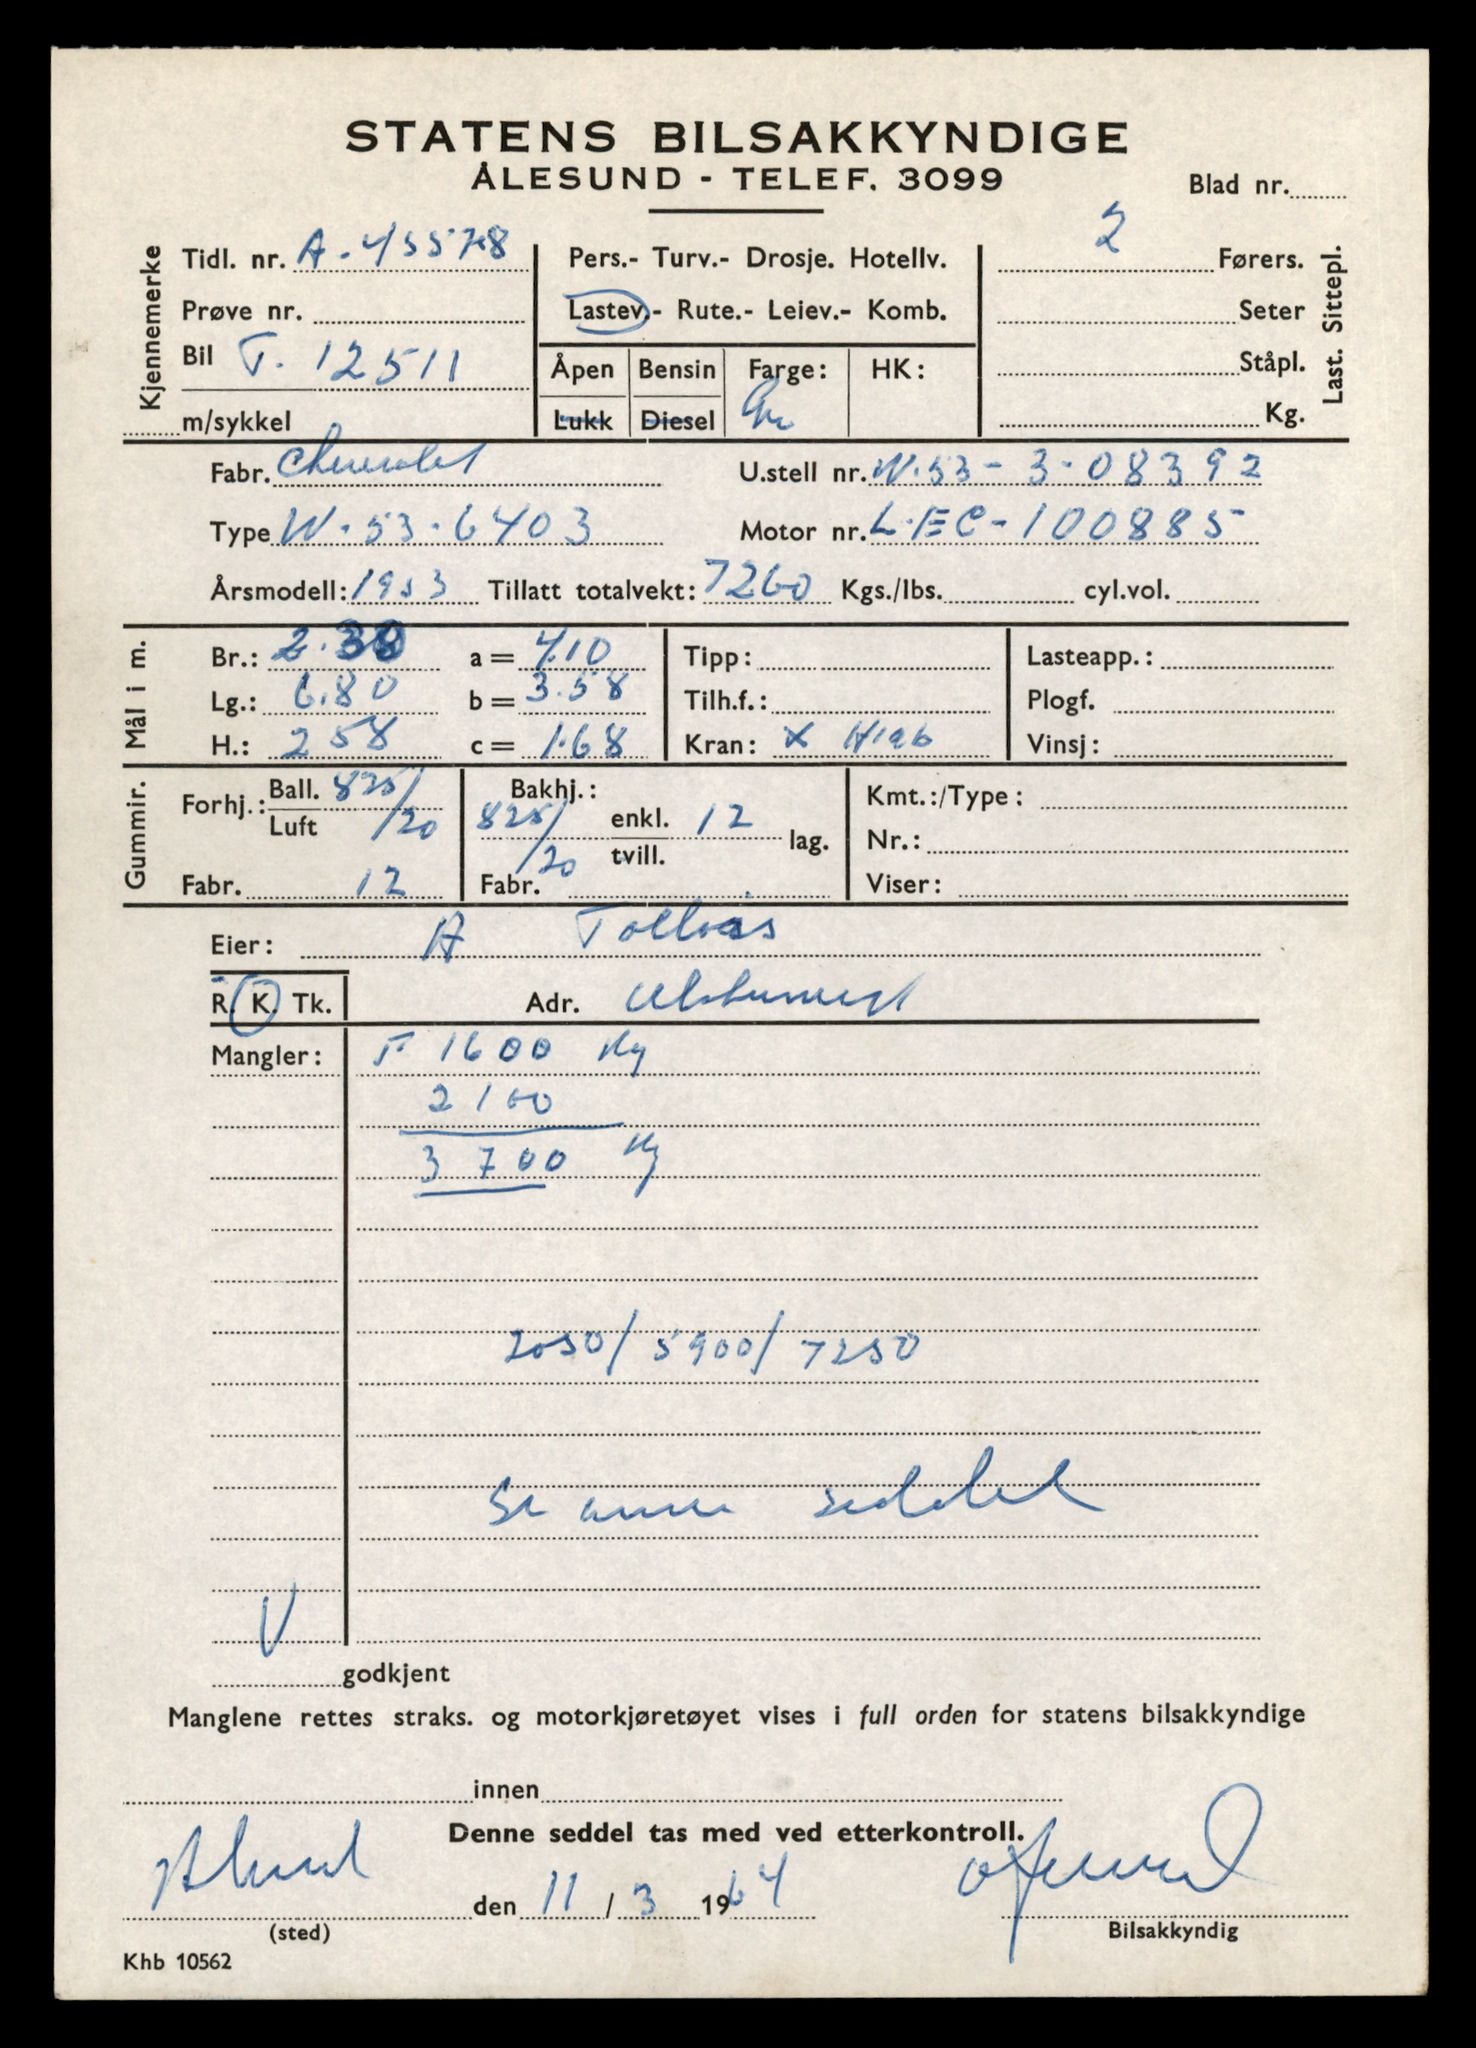 STATENS BILSAKKYNDIGE
ÅLESUND - TELEF. 3099
Blad nr.
Kjennemerke
Tidl. nr. A-45578
Prøve nr.
Bil T. 12511
m/sykkel
Pers.- Turv.- Drosje. Hotellv.
Lastev.- Rute.- Leiev.- Komb.
Åpen Bensin Farge: HK:
Lukk Diesel
2 Førers.
Seter
Ståpl.
Kg.
Last. Sittepl.
Fabr. Chevrolet U.stell nr. W.53-3-08392
Type W-53-6403 Motor nr. LEC-100885
Årsmodell: 1953 Tillatt totalvekt: 7260 Kgs./lbs. cyl.vol.
Mål i m.
Br.: 2.30 a = 4.10 Tipp: Lasteapp.:
Lg.: 6.80 b = 3.58 Tilh.f.: Plogf.
H.: 258 c = 1.68 Kran: x Hiab Vinsj:
Gummir.
Forhj.: Ball. Luft 825/20
Fabr. 12
Bakhj.:
825/20 enkl. tvill. 12 lag.
Fabr.
Kmt.:/Type:
Nr.:
Viser:
Eier: A
R. K. Tk. Adr.
Mangler: F 1600 Kg
2100
3700 Kg
2050/5900/7250
Se annen seddel
V
godkjent
Manglene rettes straks. og motorkjøretøyet vises i full orden for statens bilsakkyndige
innen
Denne seddel tas med ved etterkontroll.
Ålesund den 11/3 1964
(sted) Bilsakkyndig
Khb 10562